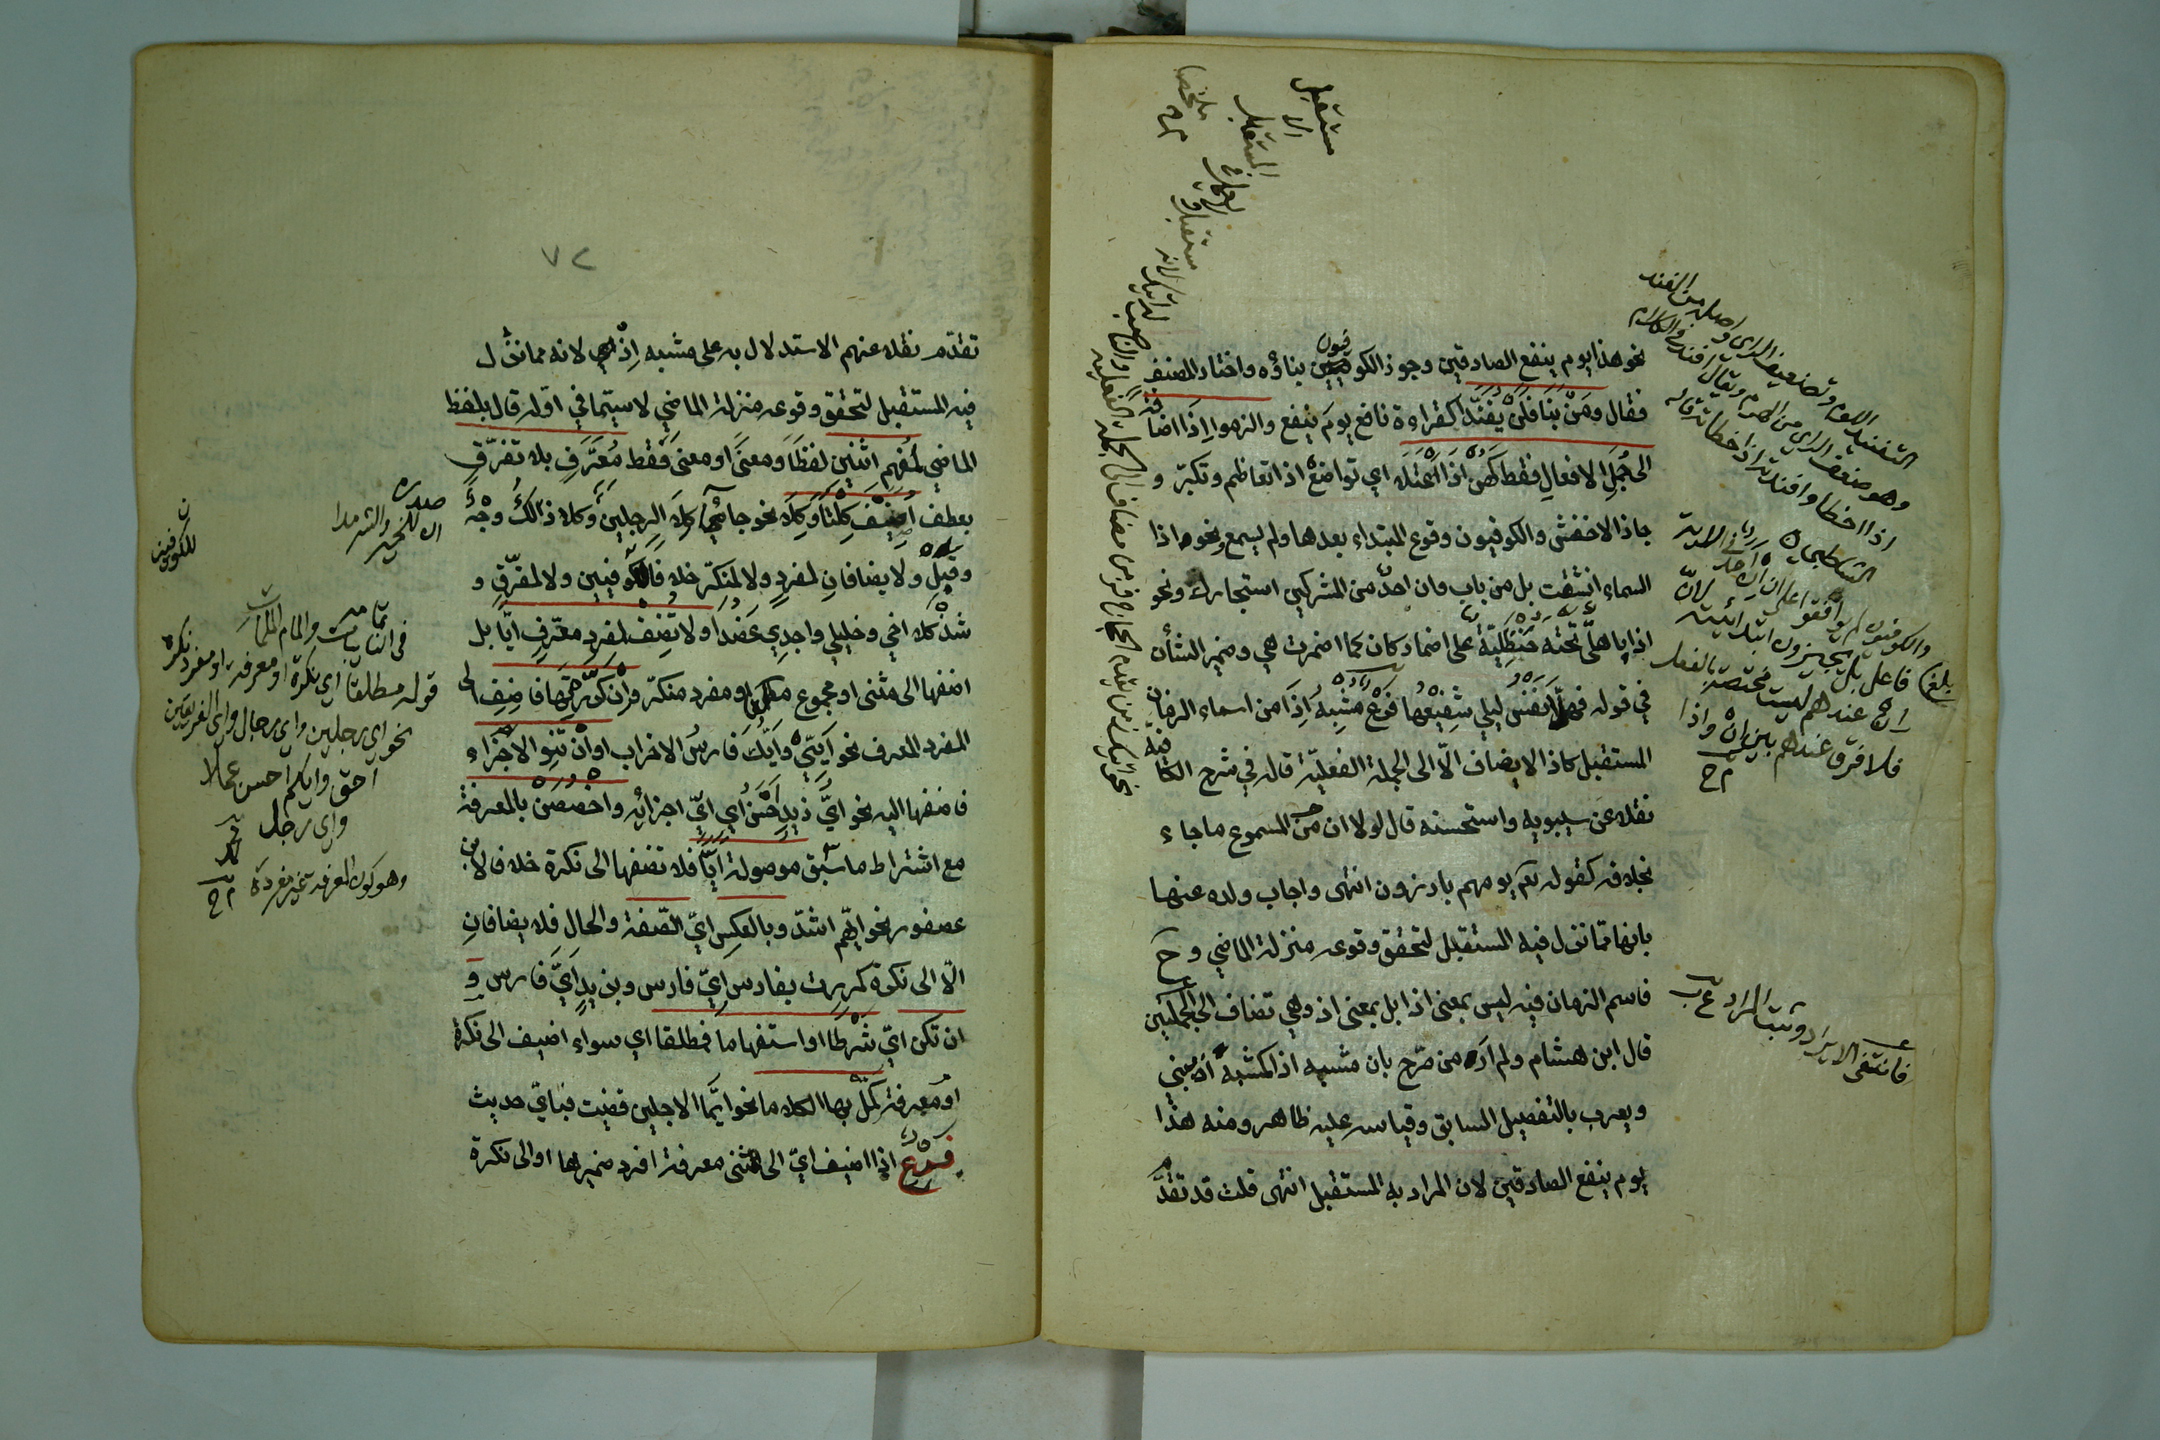 نحو هذا يوم ينفع الصادقين وجوز الكوفيون بناؤه واختاره المصنف
فقال ومن بنا فلن يفندا كقراءة نافع يوم ينفع والزموا اذا اضافة
الى جمل الافعال فقط كهن اذا اعتلا اي تواضع اذا تعاظم وتكبر و
جاز الاخفش والكوفيون وقوع المبتداء بعدها ولم يسمع ونحو اذا
السماء انشقت بل من باب وان احد من المشركين استجارك ونحو
اذا باهلي تحته حنظلية على اضمار كان كما اضمرت هي وضمير الشأن
في قوله فهلا نفس ليلى شفيعها فرع مشبه اذا من اسماء الزمان
المستقبل كاذا لا يضاف الا الى الجملة الفعلية قاله في شرح الكافية
نقلا عن سيبويه واستحسنه قال لولا ان من المسموع ما جاء
بخلافه كقوله تعالى يوم هم بارزون انتهى واجاب ولده عنها
بانها مما نزل فيه المستقبل لتحقق وقوعه منزلة الماضي وح
فاسم الزمان فيه ليس بمعنى اذا بل بمعنى اذ وهي تضاف الى الجملتين
قال ابن هشام ولم اره من صرح بان مشبه اذا كمشبه اذ يبنى
ويعرب بالتفصيل السابق وقياسه عليه ظاهر ومنه هذا
يوم ينفع الصادقين لان المراد به المستقبل انتهى قلت قد تقدم
التفنيد اللوم وتضعيف الراى واصله من الفند
وهو ضعف الراى من الهرم ويقال افند في الكلام
اذا اخطا وافندته اذا خطاته قاله
الشاطبي
والكوفيون لم يوافقوا على ان احد في الاية
فاعل بل يجيزون ابتدائيته لان
ان عندهم ليست مختصة بالفعل
فلا فرق عندهم بين ان واذا
م ح
فانتفى الايراد وثبت المراد
٧٢
تقدم نقله عنهم الاستدلال به على مشبه اذ اي لانه مما نزل
فيه المستقبل لتحقق وقوعه منزلة الماضي لا سيما في اوله قال بلفظ
الماضي لمفهم اثنين لفظا ومعنى او معنى فقط معرف بلا تفرق
بعطف اضيف كلتا وكلا نحو جائني كلا الرجلين وكلا ذلك وجه
وقبل ولا يضافان لمفرد ولا لمنكر خلافا للكوفيين ولا لمفرق و
شذ كلا اخي وخليلي واجدي عضدا ولا تضف لمفرد معرف ايا بل
اضفها الى مثنى او مجموع مطلقا او مفرد منكر وان كررتها فاضف الى
المفرد المعرف نحو ايي وايك فارس الاحزاب او ان تنو الاجزاء
فاضفها اليه نحو اي زيد حسن اي اي اجزائه واخصصن بالمعرفة
مع اشتراط ما سبق موصولة ايا فلا تضفها الى نكرة خلافا لابن
عصفور نحو ايهم اشد وبالعكس اي الصفة والحال فلا يضافان
الا الى نكرة كمررت بفارس اي فارس وبزيد اي فارس و
ان تكن اي شرطا او استفهاما فمطلقا اي سواء اضيف الى نكرة
او معرفة كمل بها الكلاما نحو ايما الاجلين قضيت فباي حديث
فرع اذا اضيف اي الى مثنى معرفة افرد ضميرها او الى نكرة
صدره
ان للخير والشر مدا
للكوفيين
تمامه
في النايبات والمام الملمات
قوله مطلقا اي نكرة او معرفة او مفرد نكرة
نحو اي رجلين واي رجال واي الفريقين
احق وايكم احسن عملا
واي رجل
وهو كون المعرفة غير مفردة م ح